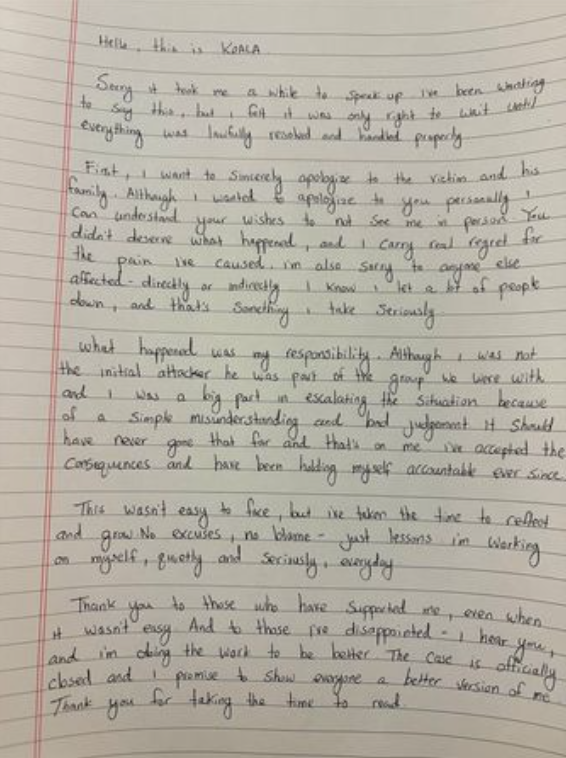 Hello, this is KOALA
Sorry it took me a while to speak up ive been wanting
to say this, but i felt it was only right to wait until
everything was lawfully resolved and handled properly
First, i want to sincerely apologize to the victim and his
family. Although i wanted to apologize to you personally i
can understand your wishes to not see me in person You
didn't deserve what happened, and i carry real regret for
the pain ive caused. im also sorry to anyone else
affected - directly or indirectly I know i let a lot of people
down, and that's something i take seriously.
What happened was my responsibility. Although i was not
the initial attacker he was part of the group we were with
and i was a big part in escalating the situation because
of a simple misunderstanding and bad judgement it should
have never gone that far and that's on me ive accepted the
consequences and have been holding myself accountable ever since.
This wasn't easy to face, but ive taken the time to reflect
and grow No excuses, no blame - just lessons im working
on myself, quietly and seriously, everyday
Thank you to those who have supported me, even when
it wasn't easy And to those ive disappointed - i hear you,
and i'm doing the work to be better The case is officially
closed and i promise to show everyone a better version of me
Thank you for taking the time to read.